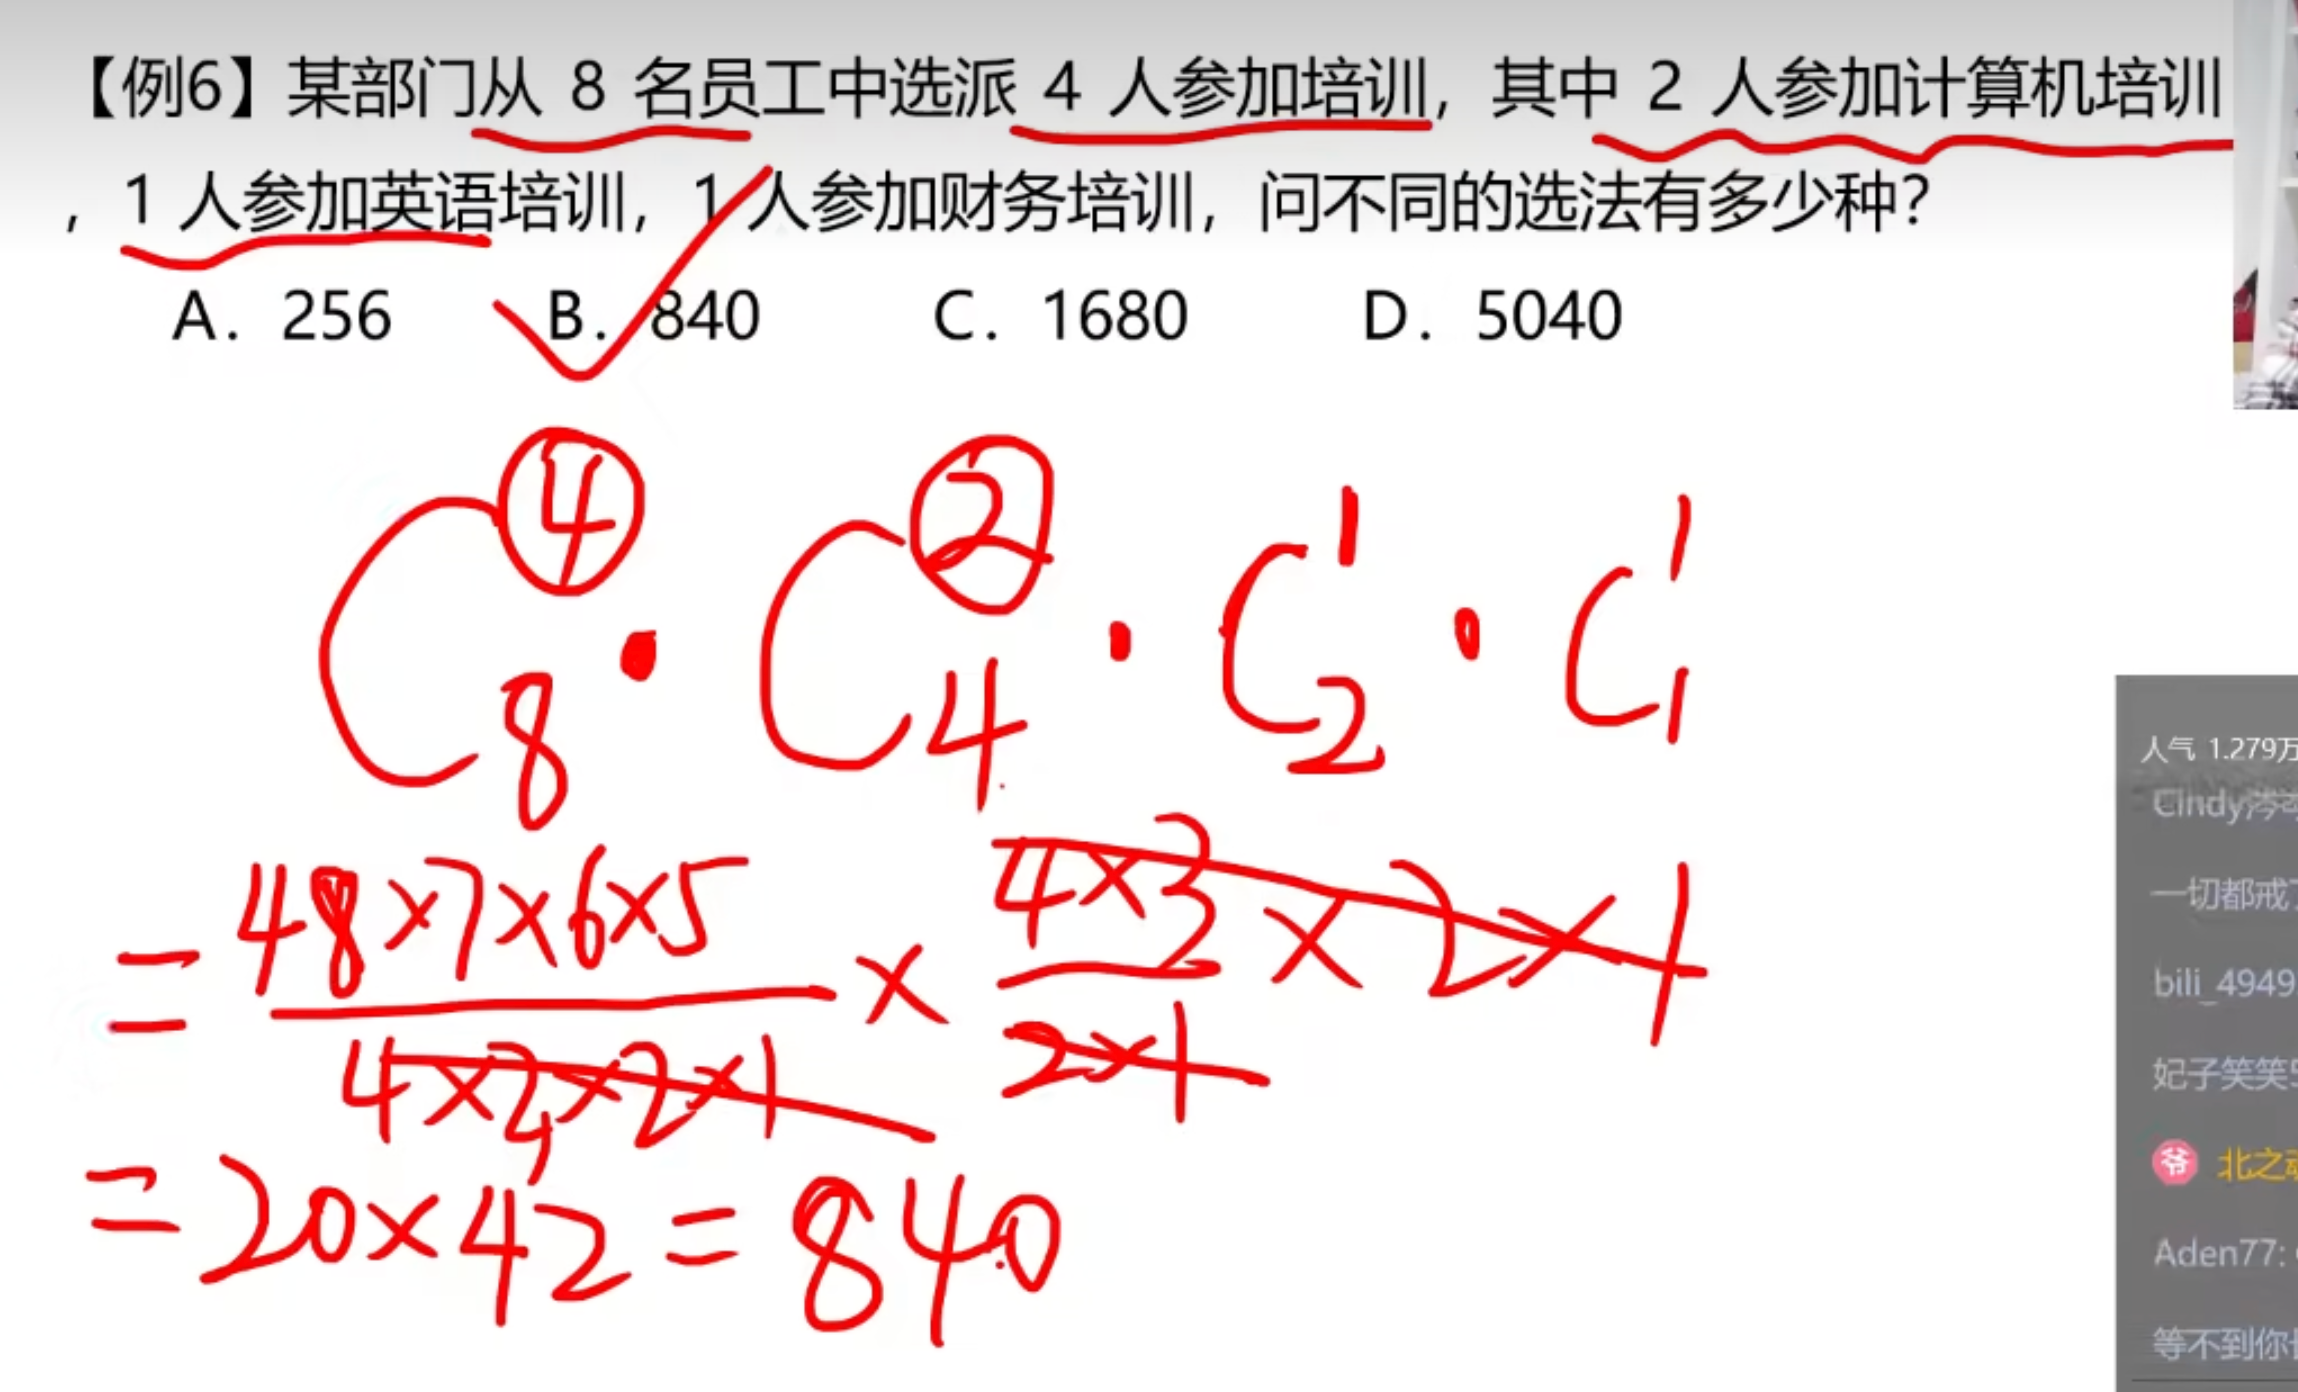 【例6】某部门从 8 名员工中选派 4 人参加培训，其中 2 人参加计算机培训
，1 人参加英语培训，1 人参加财务培训，问不同的选法有多少种？
A. 256 B. 840 C. 1680 D. 5040
C₈⁴ · C₄² · C₂¹ · C₁¹
= 48×7×6×5 / 4×3×2×1 × 4×3 / 2×1 ×2×1
= 20×42 = 840
人气 1.279万
Cindy
一切都戒
bili_4949
妃子笑笑
爷 北之
Aden77:
等不到你